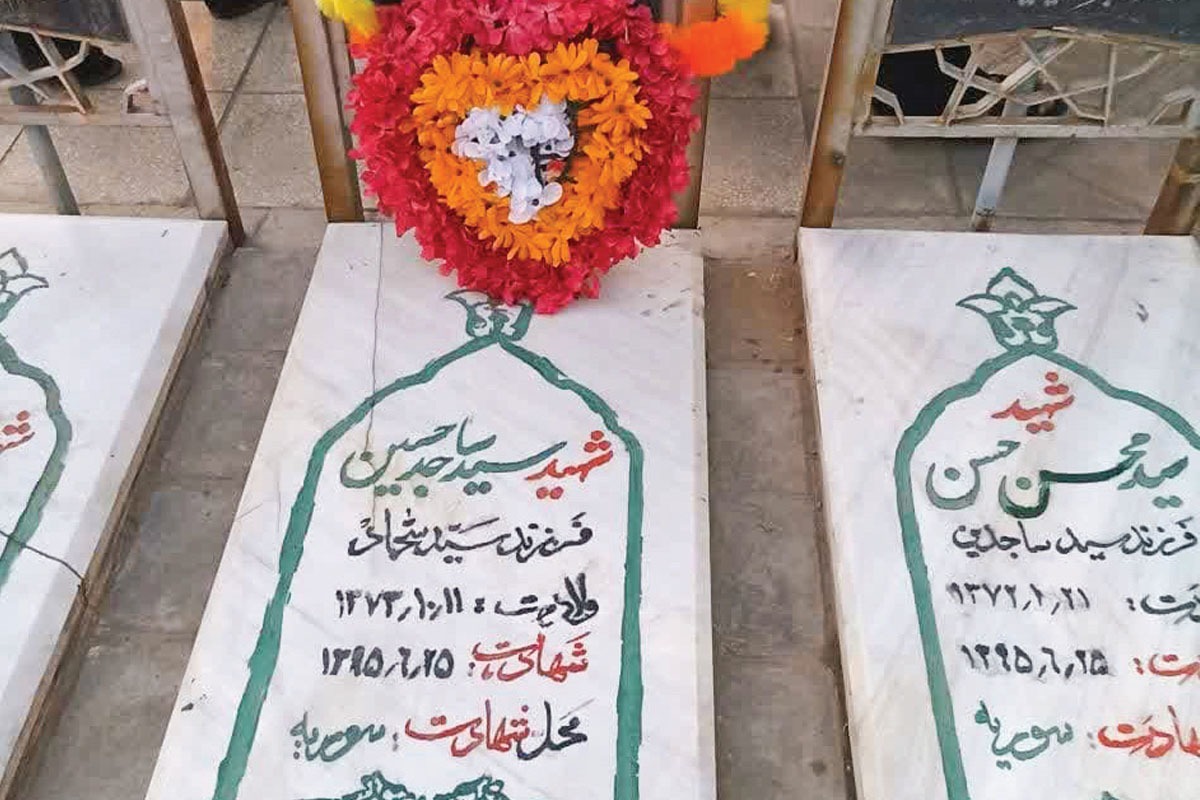 شهید سید ساجد حسین
فرزند سید شحمائی
ولادت : ۱۳۷۳٫۱۰٫۱۱
شهادت : ۱۳۹۵٫۶٫۲۵
محل شهادت : سوریه
شهید
سید محسن حسن
فرزند سید ساجدین
۱۳۷۲٫۲٫۲۱
۱۳۹۵٫۶٫۲۵
شهادت : سوریه